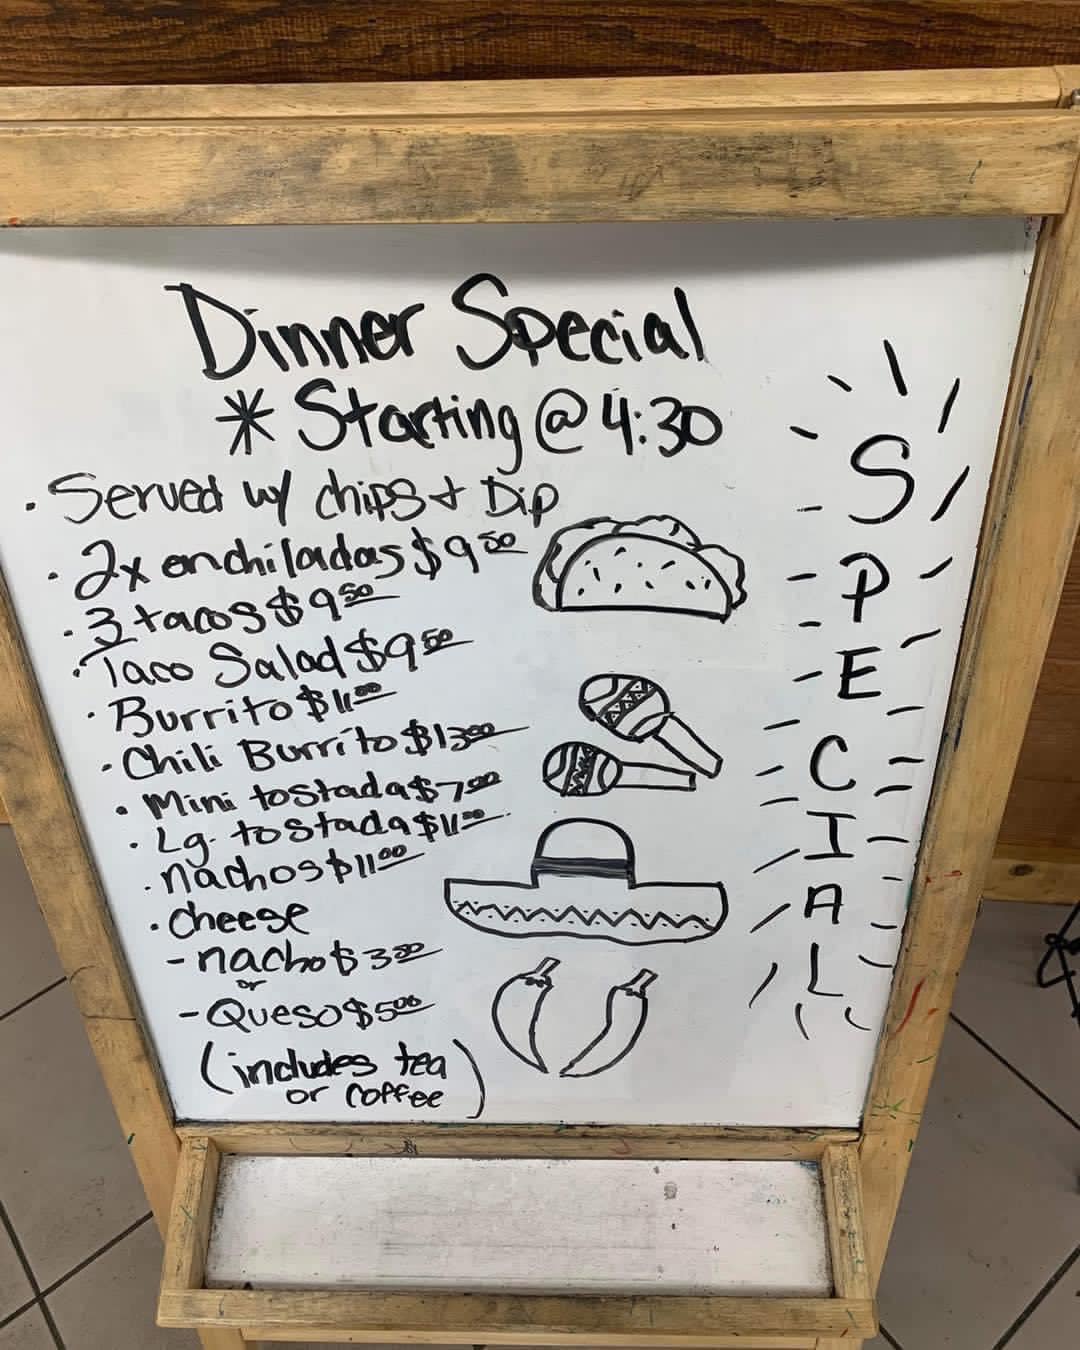 Dinner Special
* Starting @ 4:30
· Served w/ chips + Dip
· 2x enchiladas $9.50
· 3 tacos $9.50
· Taco Salad $9.50
· Burrito $11.00
· Chili Burrito $13.00
· Mini tostada $7.00
· Lg. tostada $11.00
· nachos $11.00
· cheese
- nacho $3.50
or
- Queso $5.00
(includes tea
or coffee)
S
P
E
C
I
A
L